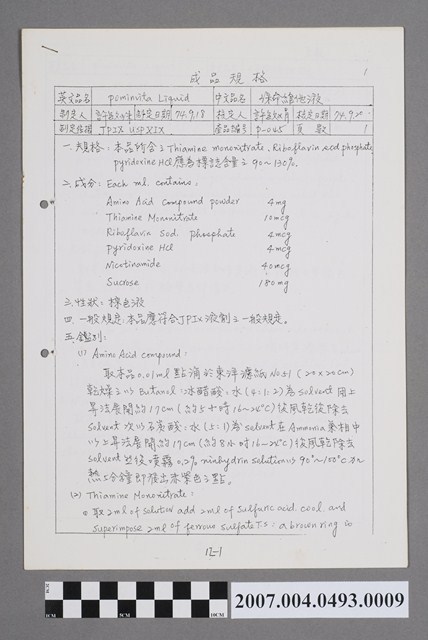 1
成品規格
英文品名 peminvita Liquid 中文品名 維他液
制定人 制定日期 74.9.18 核定人 核定日期 74.9
制定依據 JPIX USPXIX 產品編號 P-045 頁數 1
一.規格: 本品所含之Thiamine mononitrate, Riboflavin sod phosphate
pyridoxine HCl 應為標誌含量之90~130%.
二.成分: Each ml. contains:
Amino Acid compound powder 4mg
Thiamine Mononitrate 10mcg
Riboflavin Sod. phosphate 4mcg
Pyridoxine HCl 4mcg
Nicotinamide 40mcg
Sucrose 180mg
三.性狀: 棕色液
四.一般規定: 本品應符合JPIX液劑之一般規定。
五.鑑別:
(1) Amino Acid compound:
取本品0.01ml點滴於東洋濾紙No.51 (20×20cm)
乾燥之以Butanol:冰醋酸:水(4:1:2)為solvent用上
昇法展開約17cm(約5小時16~24°C)後風乾後除去
solvent次以石炭酸:水(5:1)為solvent在Ammonia氣相中
以上昇法展開約17cm(約8小時16~24°C)後風乾除去
solvent然後噴霧0.2% ninhydrin solution以90°~100°C加
熱5分鐘即種出赤紫色之點。
(2) Thiamine Mononitrate:
取2ml of solution add 2ml of sulfuric acid. cool. and
superimpose 2ml of ferrous sulfate T.S: a brown ring is
12-1
2007.004.0493.0009